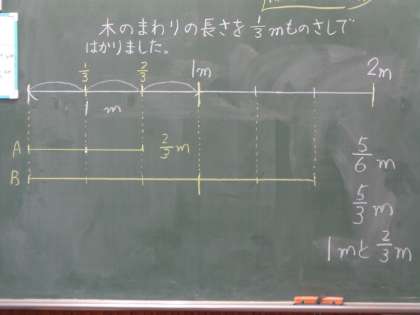 木のまわりの長さを1/3mものさしで
はかりました。
1/3 2/3 1m 2m
1 m
A 2/3 m
B
5/6 m
5/3 m
1mと2/3m